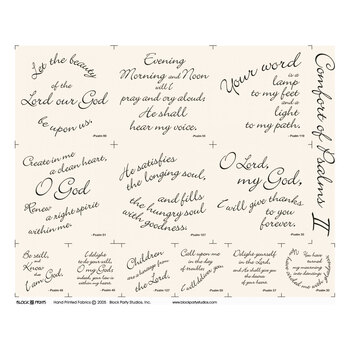 Let the beauty
of the
Lord our God
be upon us.
Psalm 90
Evening
Morning and Noon
will I
pray and cry aloud;
He shall
hear my voice.
Psalm 55
Your word
is a
lamp
to my feet
and a
light
to my path.
Psalm 119
Comfort of Psalms II
Create in me
a clean heart,
O God
Renew
a right spirit
within me.
Psalm 51
He satisfies
the longing soul,
and fills
the hungry soul
with goodness.
Psalm 107
O Lord,
my God,
I will give thanks
to you
forever.
Psalm 30
Be still,
and
Know
that
I am God.
Psalm 46
I delight
to do your will,
O my God;
indeed, your law is
within my heart.
Psalm 40
Children
are a heritage from
the Lord.
Psalm 127
Call upon me
in the day
of trouble;
I will deliver you,
Psalm 50
Delight yourself
in the Lord;
and He shall give you
the desires
of your heart.
Psalm 37
You have
turned my
mourning
into dancing
Psalm 30
BLOCK PARTY
Hand Printed Fabrics © 2005 Block Party Studios, Inc.
www.blockpartystudios.com